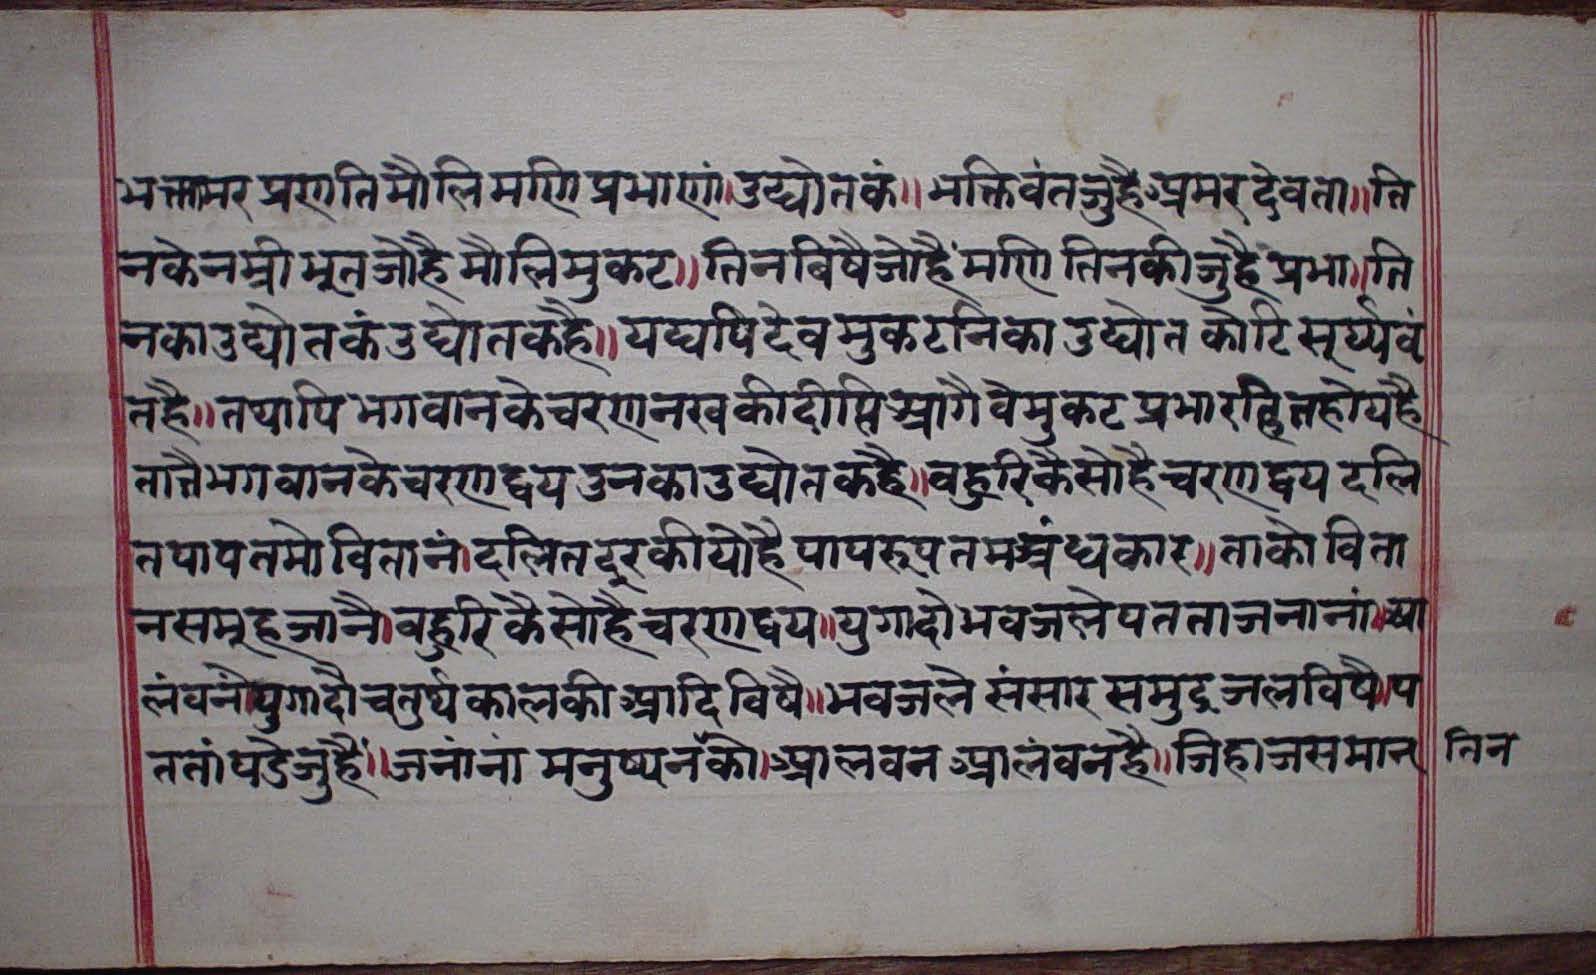 भक्तामर प्रणति मौलि मणि प्रभाणां॥उद्योतकं॥ भक्तिवंत जुहै अमर देवता॥ ति
नके नम्री भूत जो है मौलि मुकट॥ तिन बिषै जो हैं मणि तिनकी जुहै प्रभा॥ति
नका उद्योतकं उद्योतक है॥ यद्यपि देव मुकटनि का उद्योत कोटि सूर्य्यवं
त है॥ तथापि भगवान के चरण नख की दीप्ति आगै वे मुकट प्रभा रहित होय है
तातै भगवान के चरण द्वय उनका उद्योतक है॥ बहुरि कैसो है चरण द्वय दलि
त पाप तमो वितानं॥ दलित दूर कीयो है पाप रूप तम अंधकार॥ ताको विता
न समूह जानै॥ बहुरि कैसो है चरण द्वय॥ युगादो भवजले पतता जनानां॥आ
लंवनं॥युगादौ चतुर्थ काल की आदि विषै॥ भवजले संसार समुद्र जल विषै॥प
ततां पडे जुहैं॥ जनांनां मनुष्यन को॥ आलवन आलंवन है॥ जिहाज समान तिन